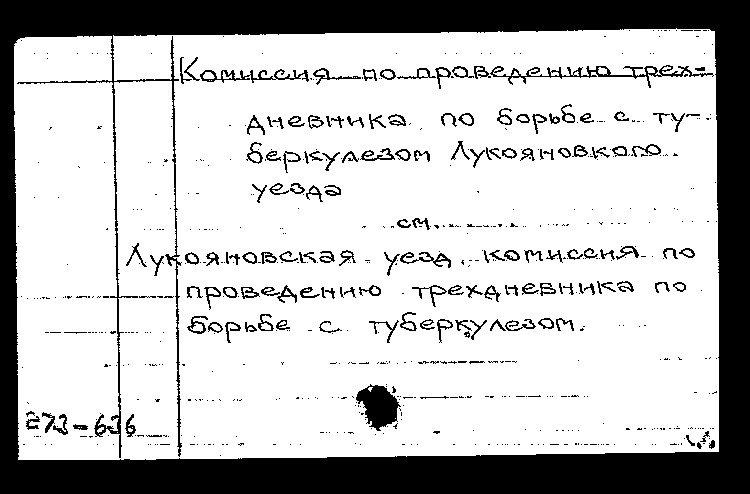 Комиссия по проведению трех-
дневника по борьбе с ту-
беркулезом Лукояновкого
уезда
см.
Лукояновская уезд. комиссия по
проведению трехдневника по
борьбе с туберкулезом.
273-636